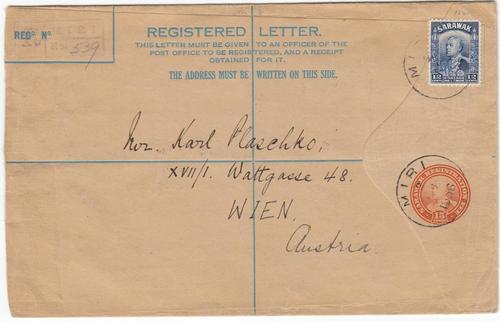 REGISTERED LETTER.
THIS LETTER MUST BE GIVEN TO AN OFFICER OF THE
POST OFFICE TO BE REGISTERED, AND A RECEIPT
OBTAINED FOR IT.
THE ADDRESS MUST BE WRITTEN ON THIS SIDE.
REGD. No.
539
SARAWAK
12 12
MIRI
Karl Plaschko,
XVII/1. Wattgasse 48.
WIEN.
Austria.
MIRI
SARAWAK REGISTRATION
15